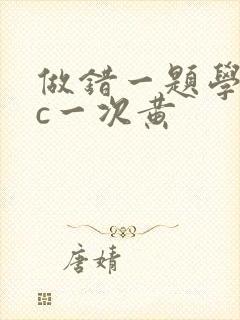 做錯一題學
c一次黃
唐婧